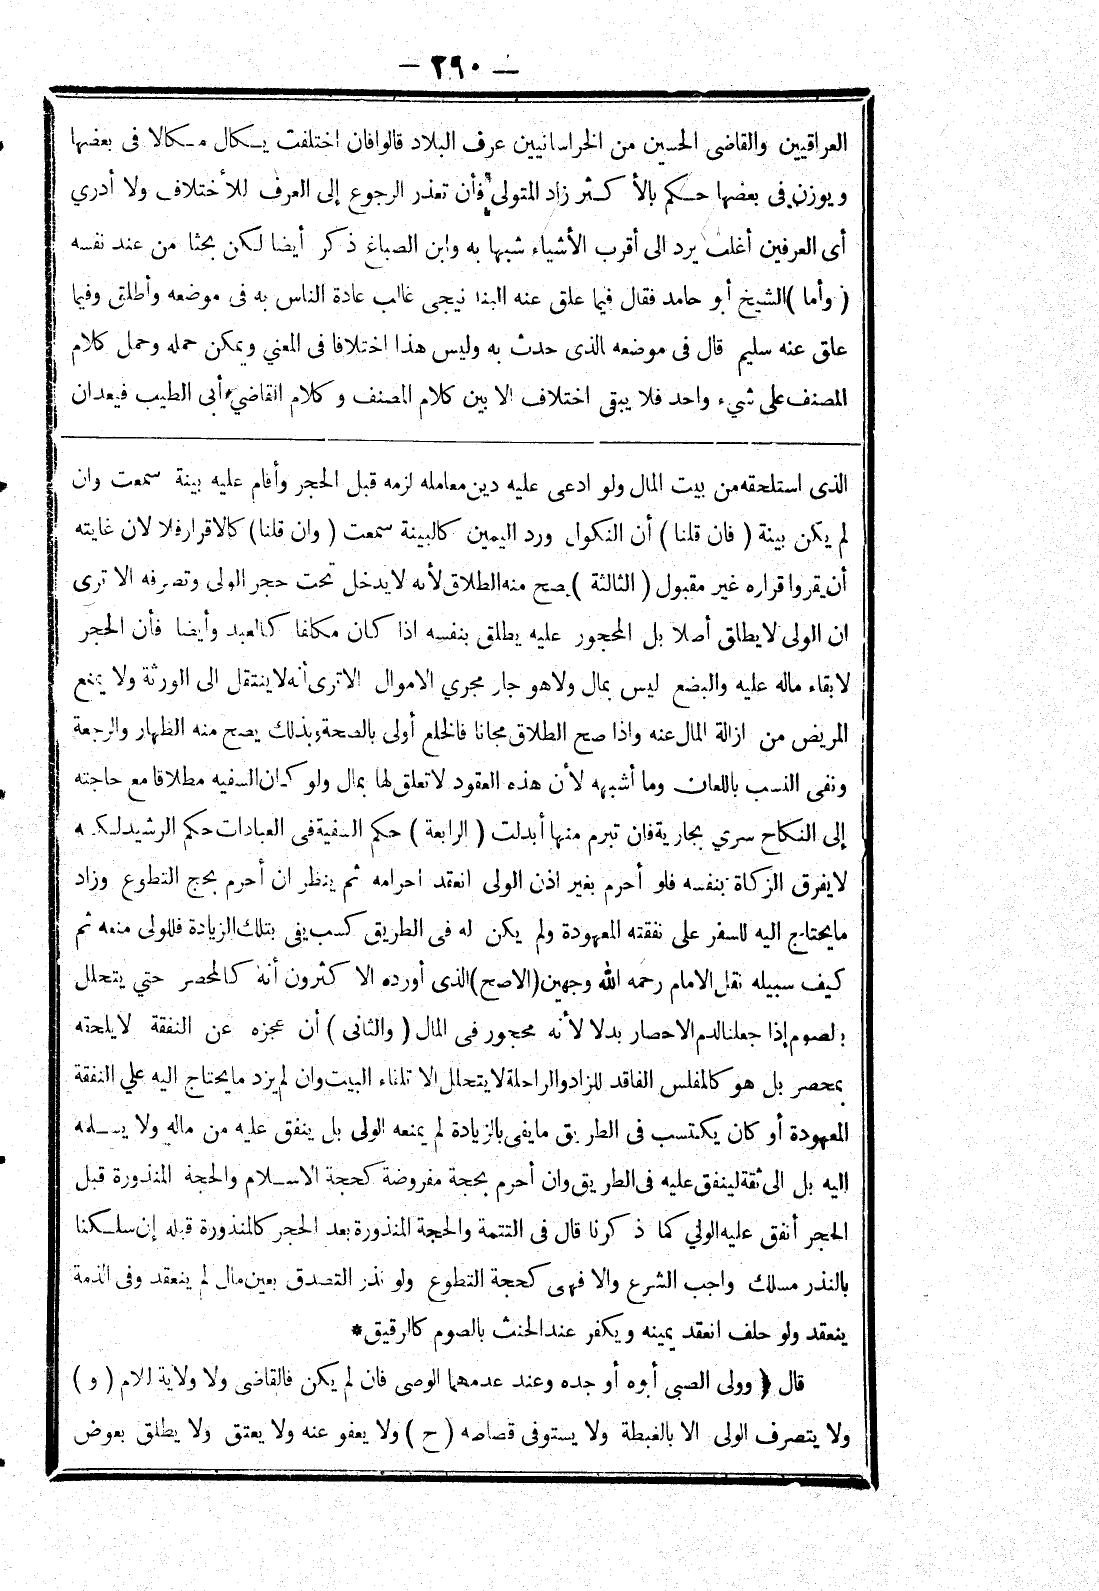 — ٢٩٠ —
العراقيين والقاضى الحسين من الخراسانيين عرف البلاد قالوا فان اختلفت يكال مكالا فى بعضها
ويوزن فى بعضها حكم بالأكثر زاد المتولى فأن تعذر الرجوع إلى العرف للأختلاف ولا أدري
أى العرفين أغلب يرد الى أقرب الأشياء شبها به وابن الصباغ ذكر أيضا لكن بحثا من عند نفسه
( وأما ) الشيخ أبو حامد فقال فيما علق عنه البندنيجى غالب عادة الناس به فى موضعه وأطلق وفيما
علق عنه سليم قال فى موضعه الذى حدث به وليس هذا اختلافا فى المعني ويمكن حمله وحمل كلام
المصنف على شيء واحد فلا يبقى اختلاف الا بين كلام المصنف وكلام القاضي أبى الطيب فيعدان
الذى استلحقه من بيت المال ولو ادعى عليه دين معامله لزمه قبل الحجر وأقام عليه بينة سمعت وان
لم يكن بينة ( فان قلنا ) أن النكول ورد اليمين كالبينة سمعت ( وان قلنا ) كالاقرار فلا لان غايته
أن يقر واقراره غير مقبول ( الثالثة ) يصح منه الطلاق لأنه لا يدخل تحت حجر الولى وتصرفه الا ترى
ان الولى لا يطلق أصلا بل المحجور عليه يطلق بنفسه اذا كان مكلفا كالعبد وأيضا فأن الحجر
لابقاء ماله عليه والبضع ليس بمال ولا هو جار مجري الاموال الا ترى أنه لا ينتقل الى الورثة ولا يمنع
المريض من ازالة المال عنه واذا صح الطلاق مجانا فالخلع أولى بالصحة وبذلك يصح منه الظهار والرجعة
ونفى النسب باللعان وما أشبهه لأن هذه العقود لا تعلق لها بمال ولو كان السفيه مطلاقا مع حاجته
إلى النكاح سري بجارية فان تبرم منها أبدلت ( الرابعة ) حكم السفيه فى العبادات حكم الرشيد لكنه
لا يفرق الزكاة بنفسه فلو أحرم بغير اذن الولى انعقد احرامه ثم ينظر ان أحرم بحج التطوع وزاد
ما يحتاج اليه للسفر على نفقته المعهودة ولم يكن له فى الطريق كسب يفى بتلك الزيادة فللولى منعه ثم
كيف سبيله نقل الامام رحمه الله وجهين (الاصح) الذى أورده الاكثرون أنه كالمحصر حتي يتحلل
بالصوم إذا جعلنا لدم الاحصار بدلا لأنه محجور فى المال ( والثانى ) أن عجزه عن النفقة لا يلحقه
بمحصر بل هو كالمفلس الفاقد للزاد والراحلة لا يتحلل الا تلقاء البيت وان لم يزد ما يحتاج اليه علي النفقة
المعهودة أو كان يكتسب فى الطريق ما يفى بالزيادة لم يمنعه الولى بل ينفق عليه من ماله ولا يسلمه
اليه بل الى ثقة لينفق عليه فى الطريق وان أحرم بحجة مفروضة كحجة الاسلام والحجة المنذورة قبل
الحجر أنفق عليه الولي كما ذكرنا قال فى التتمة والحجة المنذورة بعد الحجر كالمنذورة قبله إن سلكنا
بالنذر مسلك واجب الشرع والا فهى كحجة التطوع ولو نذر التصدق بعين مال لم ينعقد وفى الذمة
ينعقد ولو حلف انعقد يمينه ويكفر عند الحنث بالصوم كالرقيق *
قال ﴿ وولى الصبى أبوه أو جده وعند عدمهما الوصى فان لم يكن فالقاضى ولا ولاية للام ( و )
ولا يتصرف الولى الا بالغبطة ولا يستوفى قصاصه ( ح ) ولا يعفو عنه ولا يعتق ولا يطلق بعوض